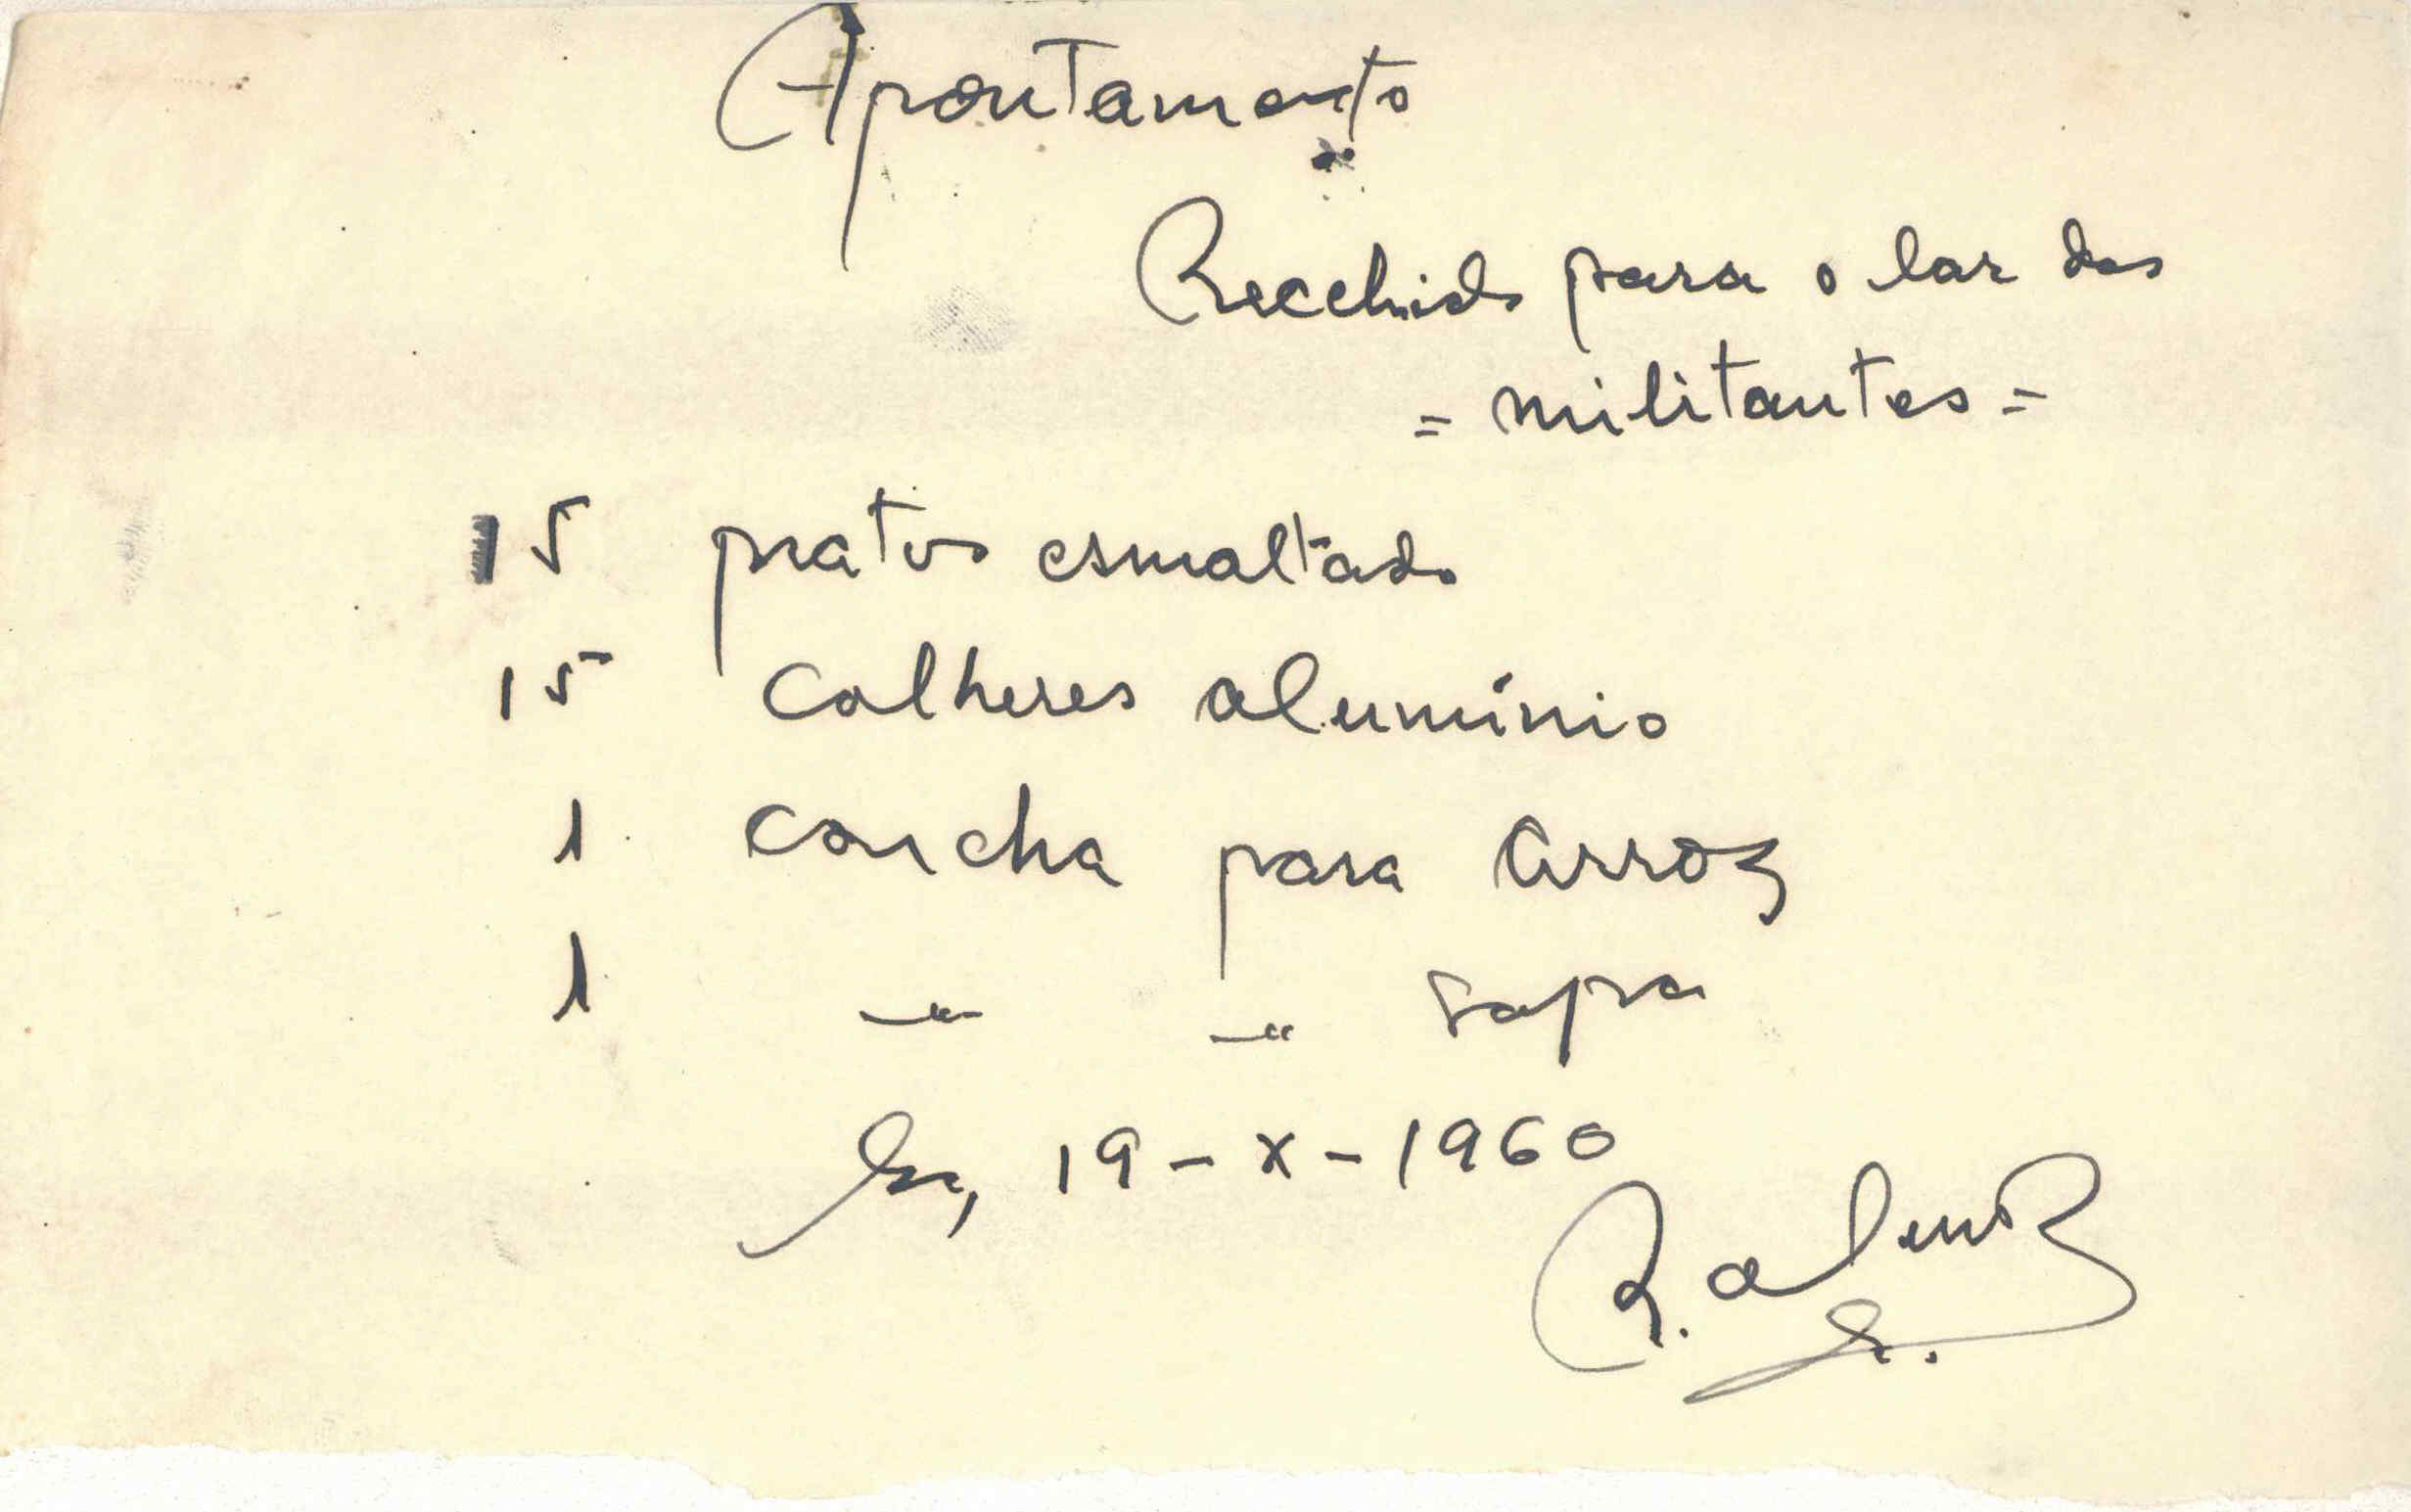 Apontamento
Recebido para o lar dos
= militantes =
15 pratos esmaltado
15 colheres alumínio
1 concha para arroz
1 -"- -"- sopa
19-X-1960
R.